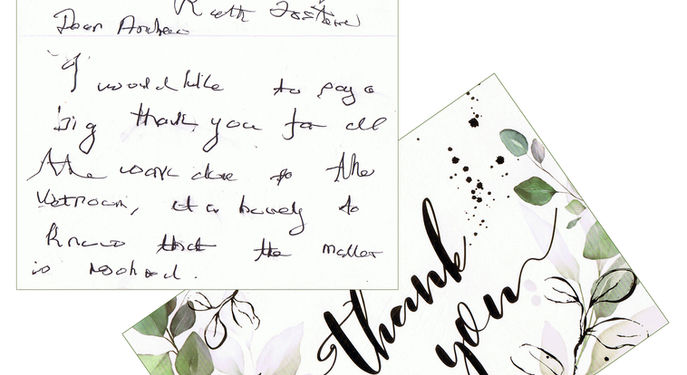 Ruth
Dear Andrew
I would like to pay a
big thank you for all
the work done to the
Wetroom, it a lovely to
know that the matter
is resolved.
thank
you